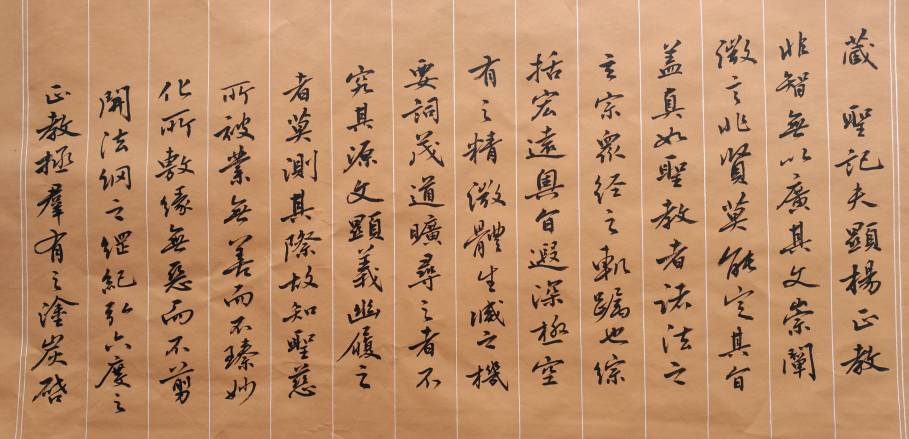 蔵聖記夫顯揚正教
非智無以廣其文崇闡
微言非賢莫能定其旨
蓋真如聖教者諸法之
玄宗眾經之軌躅也綜
括宏遠奧旨遐深極空
有之精微體生滅之機
要詞茂道曠尋之者不
究其源文顯義幽履之
者莫測其際故知聖慈
所被業無善而不臻妙
化所敷緣無惡而不剪
開法網之綱紀弘六度之
正教拯群有之塗炭啓